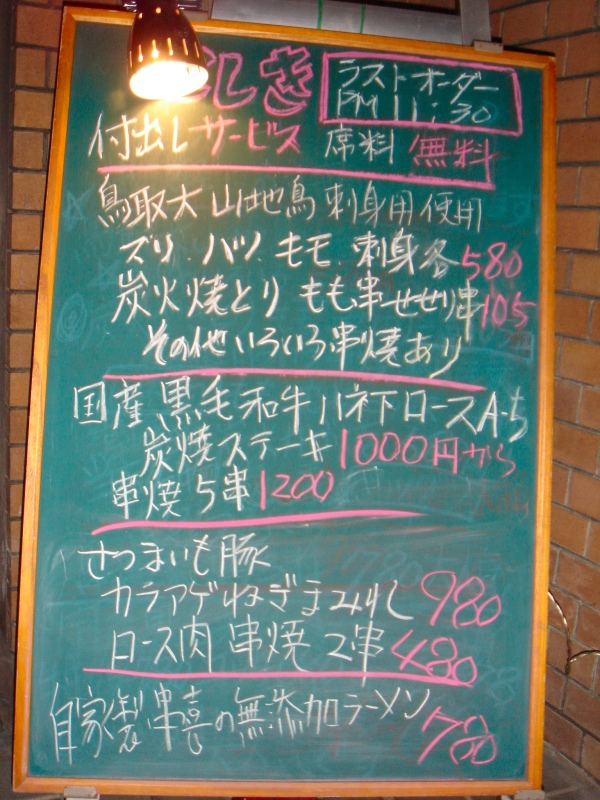 しき
ラストオーダー
PM 11:30
付出しサービス 席料 無料
鳥取大山地鳥刺身用使用
ズリ.ハツ.モモ.刺身各580
炭火焼とり もも串せせり串105
その他いろいろ串焼あり
国産黒毛和牛ハネ下ロースA-5
炭焼ステーキ1000円から
串焼5串1200
さつまいも豚
カラアゲねぎまみれ980
ロース肉 串焼2串480
自家製串喜の無添加ラーメン780